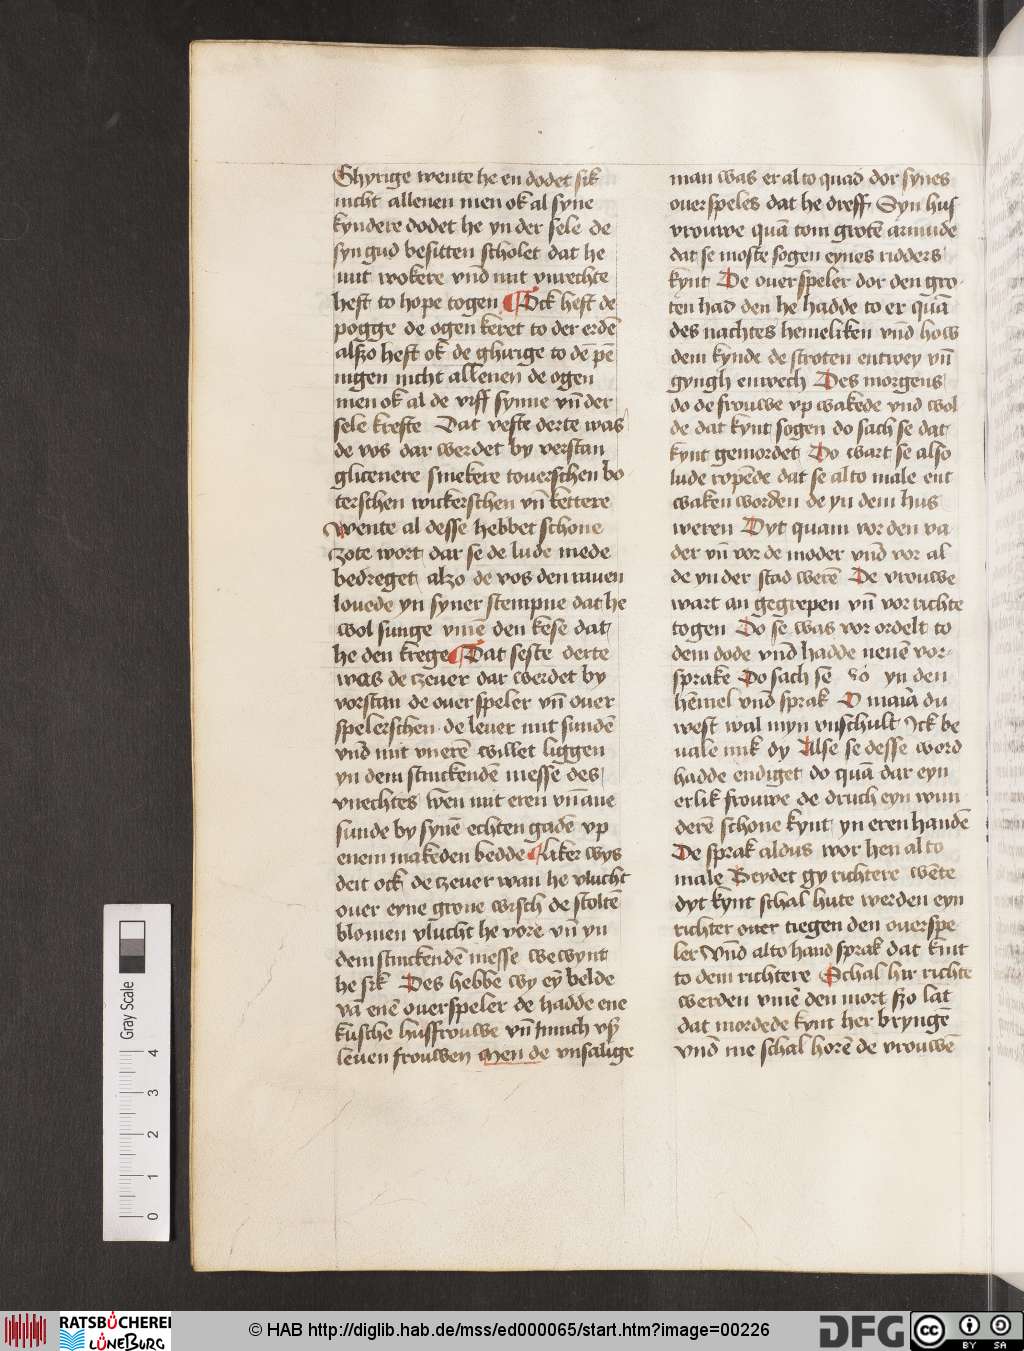 Ghyrige wente he en dodet sik
nicht allenen men ok al syne
kyndere dodet he yn der sele de
syn gud besitten scholet dat he
mit wokere vnd mit vnrechte
heft to hope togen Ock heft de
pogge de ogen keret to der erdē
alszo heft ok de ghirige to dē pē
nigen nicht allenen de ogen
men ok al de vrff synne vn̄ der
sele krefte Dat vefte derte was
de vos dar werdet by verstan
glicenere smekere touerschen bo
terschen wickerschen vn̄ kettere
Wente al desse hebbet schone
zote wort dar se de lude mede
bedreget alzo de vos den rauen
louede yn syner stempne dat he
wol sunge vmē den kese dat
he den krege Dat seste derte
was de tzeuer dar werdet by
vorstan de ouerspeler vn̄ ouer
spelerschen de leuer mit sundē
vnd mit vnerē willet liggen
yn dem stinckendē messe des
vnechtes wen mit eren vn̄ ane
sunde by synē echten gadē vp
enem makeden bedde Liker wys
deit ock de tzeuer wan he vlucht
ouer eyne grone wisch de stoltē
blomen vlucht he vore vn̄ yn
dem stinckendē messe wewynt
he sik Des hebbē wy ey belde
vā enē ouerspeler de hadde ene
kusche husfrouwe vn̄ much vs
leuen frouwen Men de vnsalige
man was er al to quad dor synes
ouerspeles dat he dreff Syn hus
vrouwe quā tom grotē armude
dat se moste sogen eynes ridders
kynt De ouerspeler dor den gro
ten had den he hadde to er quā
des nachtes hemeliken vnd how
dem kynde de stroten entwey vn̄
gyngh enwech Des morgens
do de frouwe vp wakede vnd wol
de dat kynt sogen do sach se dat
kynt gemordet Do wart se also
lude ropēde dat se al to male ent
waken worden de yn dem hus
weren Dyt quam vor den va
der vn̄ vor de moder vnd vor al
de yn der stad werē De vrouwe
wart an gegrepen vn̄ vor richte
togen Do se was vorordelt to
dem dode vnd hadde nenē vor
sprake Do sach sē so yn den
hēmel vnd sprak O maria du
west wal myn vnschult Ick be
uale mik dy Alse se desse word
hadde endiget do quā dar eyn
erlik frouwe de druch eyn wun
derē schone kynt yn eren handē
De sprak aldus wor hen al to
male Beydet gy richtere wēte
dyt kynt schal hute werden eyn
richter ouer tiegen den ouerspe
ler Vnd alto hand sprak dat kint
to dem richtere Schal hir richte
werden vmē den mort szo lat
dat mordede kynt her bryngē
vnd me schal horē de vrouwē
Gray Scale
4
3
2
1
0
RATSBÜCHEREI
LÜNEBURG
© HAB http://diglib.hab.de/mss/ed000065/start.htm?image=00226
DFG
cc
BY SA